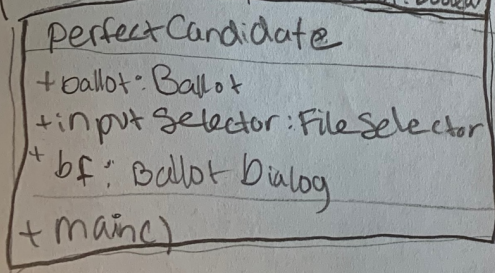 perfectCandidate
+ballot: Ballot
+input Selector: FileSelector
+ bf: Ballot Dialog
+ main()